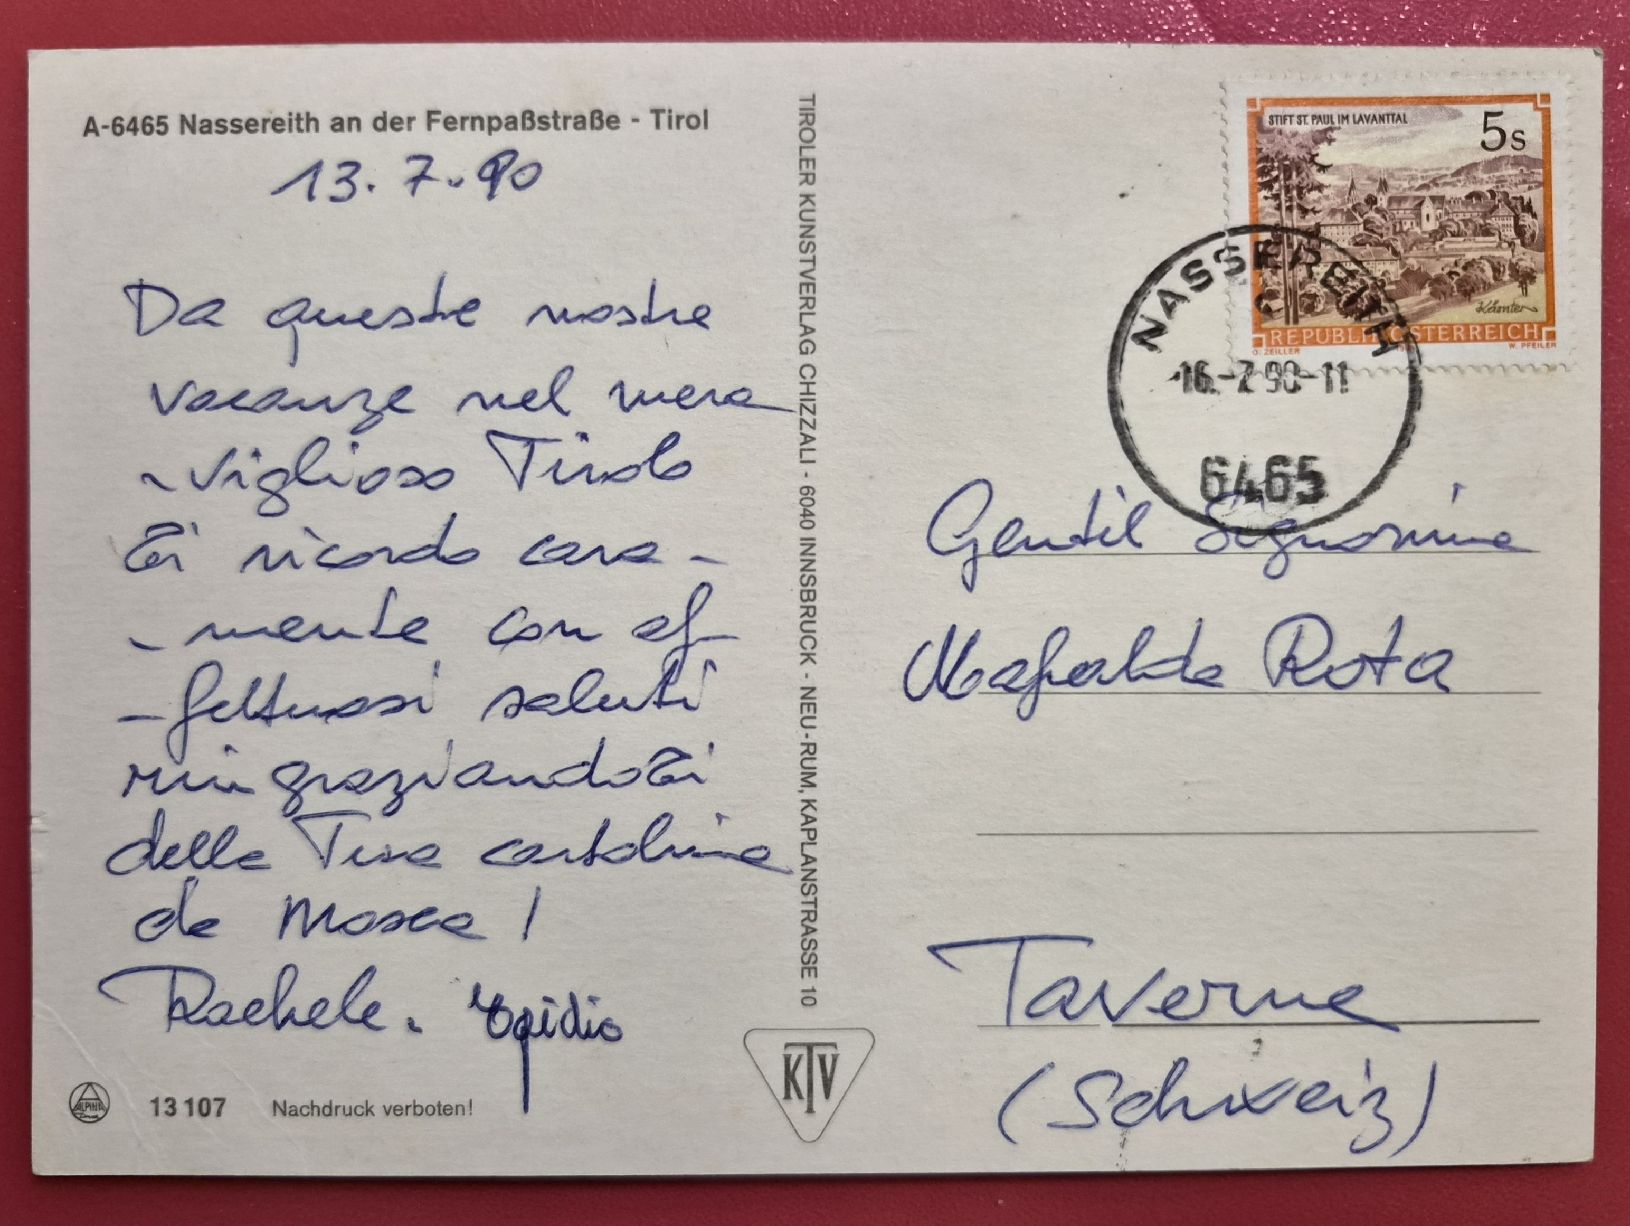 A-6465 Nassereith an der Fernpaßstraße - Tirol
13.7.90
Da queste nostre
vacanze nel mera
-viglioso Tirolo
Ti ricordo cara-
-mente con af-
-fettuosi saluti
ringraziandoTi
della Tua cartolina
da Mosca!
Rachele. Egidio
ALPINA
13107 Nachdruck verboten!
TIROLER KUNSTVERLAG CHIZZALI - 6040 INNSBRUCK - NEU-RUM, KAPLANSTRASSE 10
KTV
STIFT ST. PAUL IM LAVANTTAL
5s
Kärnten
REPUBLIK ÖSTERREICH
O. ZEILLER W. PFEILER
NASSEREITH
16.-7.90-11
6465
Gentil Signorina
Mafalda Rota
Taverne
(Schweiz)